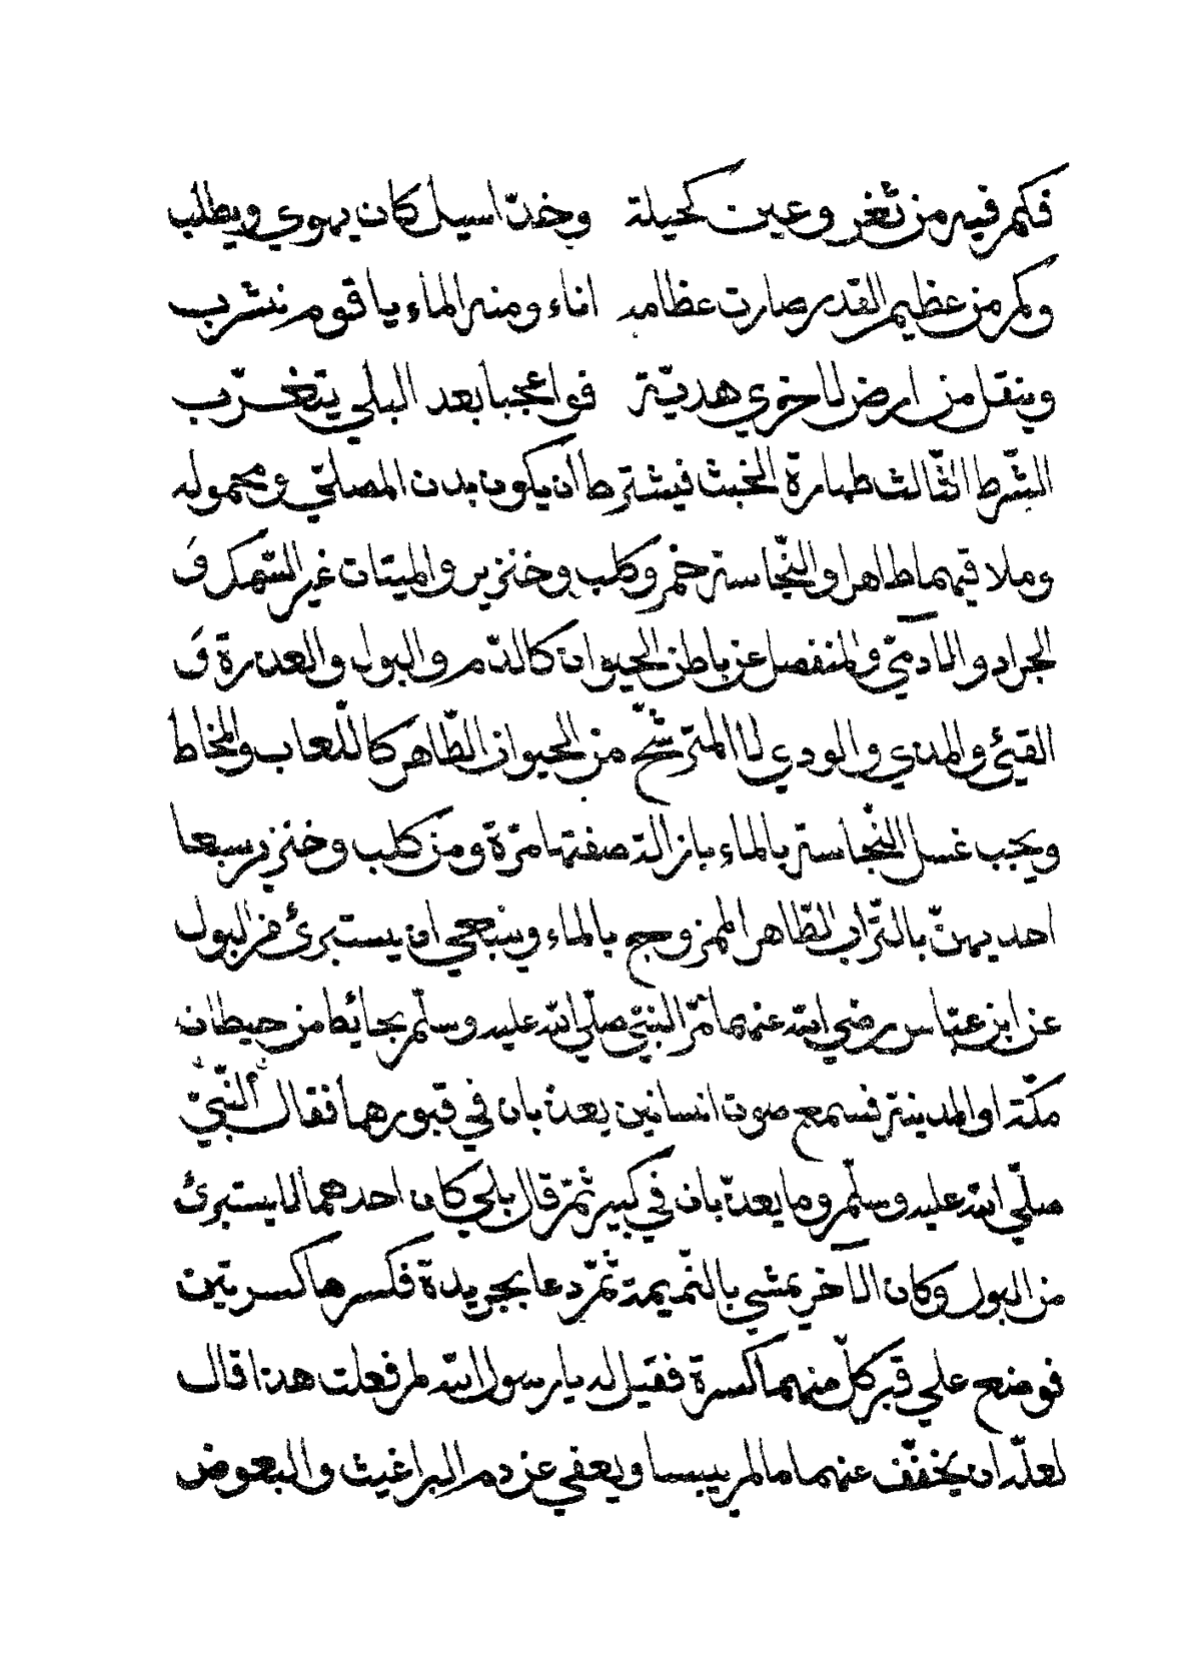 فكم فيه من ثغر وعين كحيلة وخدّ اسيل كان يهوي ويطلب
وكم من عظيم القدر صارت عظامه اناء ومنه الماء يا قوم نشرب
وينقل من ارض لاخري هديّة فواعجبا بعد البلي يتغرّب
الشّرط الثّالث طهارة الخبث فيشترط ان يكون بدن المصلّي ومحموله
وملاقيهما طاهرا والنّجاسة خمر وكلب وخنزير والميتات غير السّمك و
الجراد والآدميّ والمنفصل عن باطن الحيوان كالدّم والبول والعذرة و
القيئ والمذي والودي لا المترشّح من الحيوان الطّاهر كاللّعاب والمخاط
ويجب غسل النّجاسة بالماء بازالة صفتها مرّة ومن كلب وخنزير سبعا
احديهنّ بالتّراب الطّاهر الممزوج بالماء وينبغي ان يستبرئ من البول
عن ابن عبّاس رضي الله عنهما مرّ النّبيّ صلّي الله عليه وسلّم بحائط من حيطان
مكّة او المدينة فسمع صوت انسانين يعذّبان في قبورهما فقال النّبيّ
صلّي الله عليه وسلّم وما يعذّبان في كبير ثمّ قال بلي كان احدهما لا يستبرئ
من البول وكان الآخر يمشي بالنّميمة ثمّ دعا بجريدة فكسرها كسرتين
فوضع علي قبر كلّ منهما كسرة فقيل له يا رسول الله لم فعلت هذا قال
لعلّه ان يخفّف عنهما ما لم ييبسا ويعفي عن دم البراغيث والبعوض